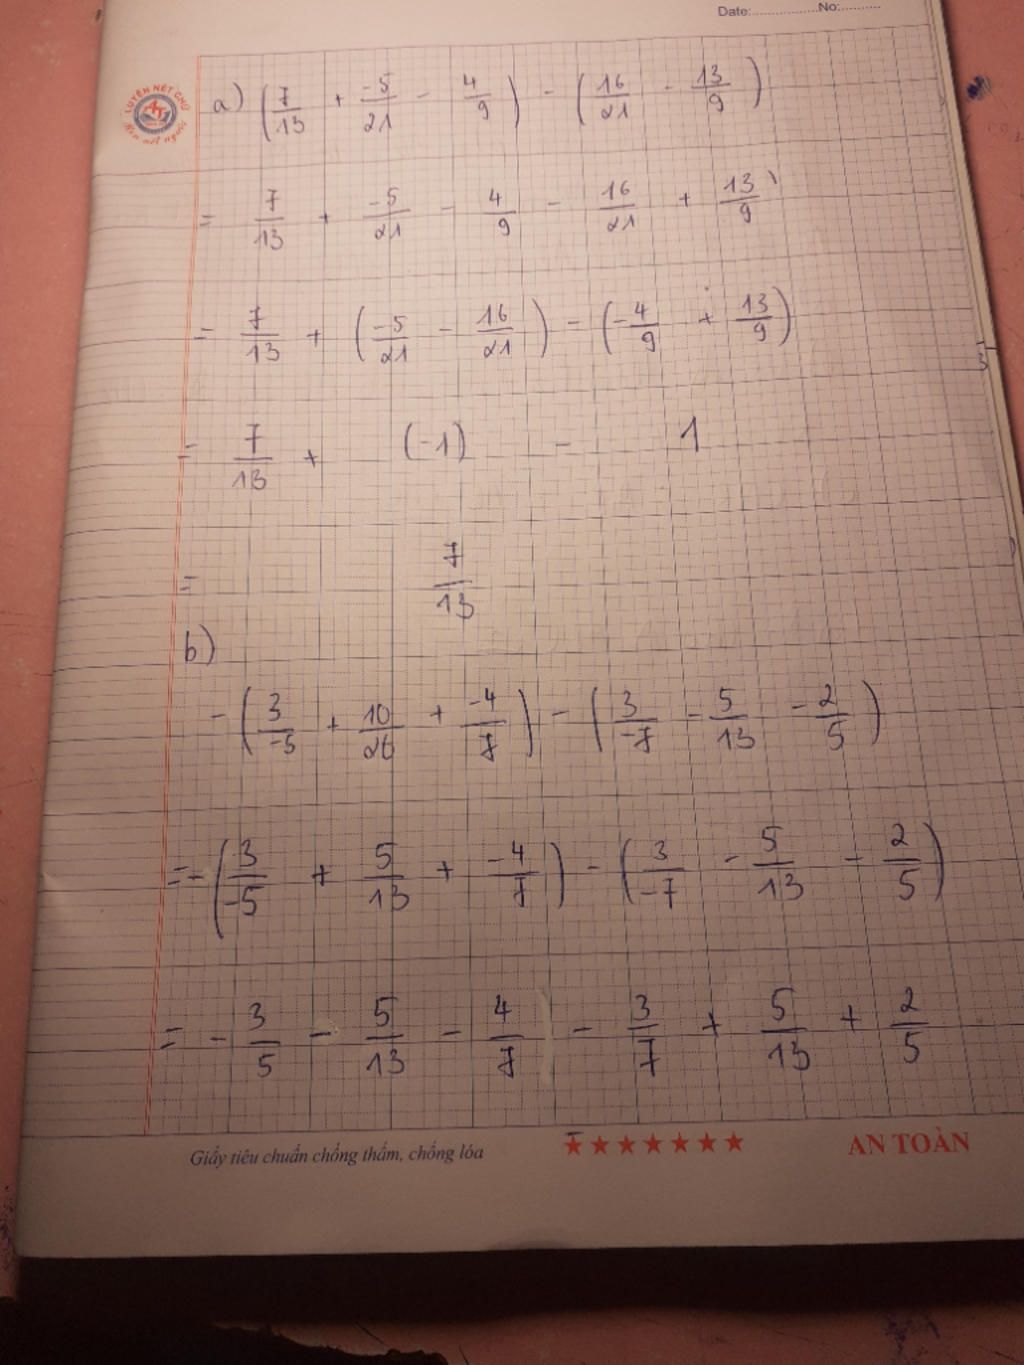 Date:................No:..........
LUYỆN NÉT CHỮ
Rèn nết người
a) (7/13 + -5/21 - 4/9) - (16/21 - 13/9)
= 7/13 + -5/21 - 4/9 - 16/21 + 13/9
= 7/13 + (-5/21 - 16/21) - (-4/9 + 13/9)
= 7/13 + (-1) - 1
= 7/13
b)
- (3/-5 + 10/26 + -4/7) - (3/-7 - 5/13 - 2/5)
= - (3/-5 + 5/13 + -4/7) - (3/-7 - 5/13 - 2/5)
= - 3/5 - 5/13 - 4/7 - 3/7 + 5/13 + 2/5
Giấy tiêu chuẩn chống thấm, chống lóa ★★★★★★★ AN TOÀN